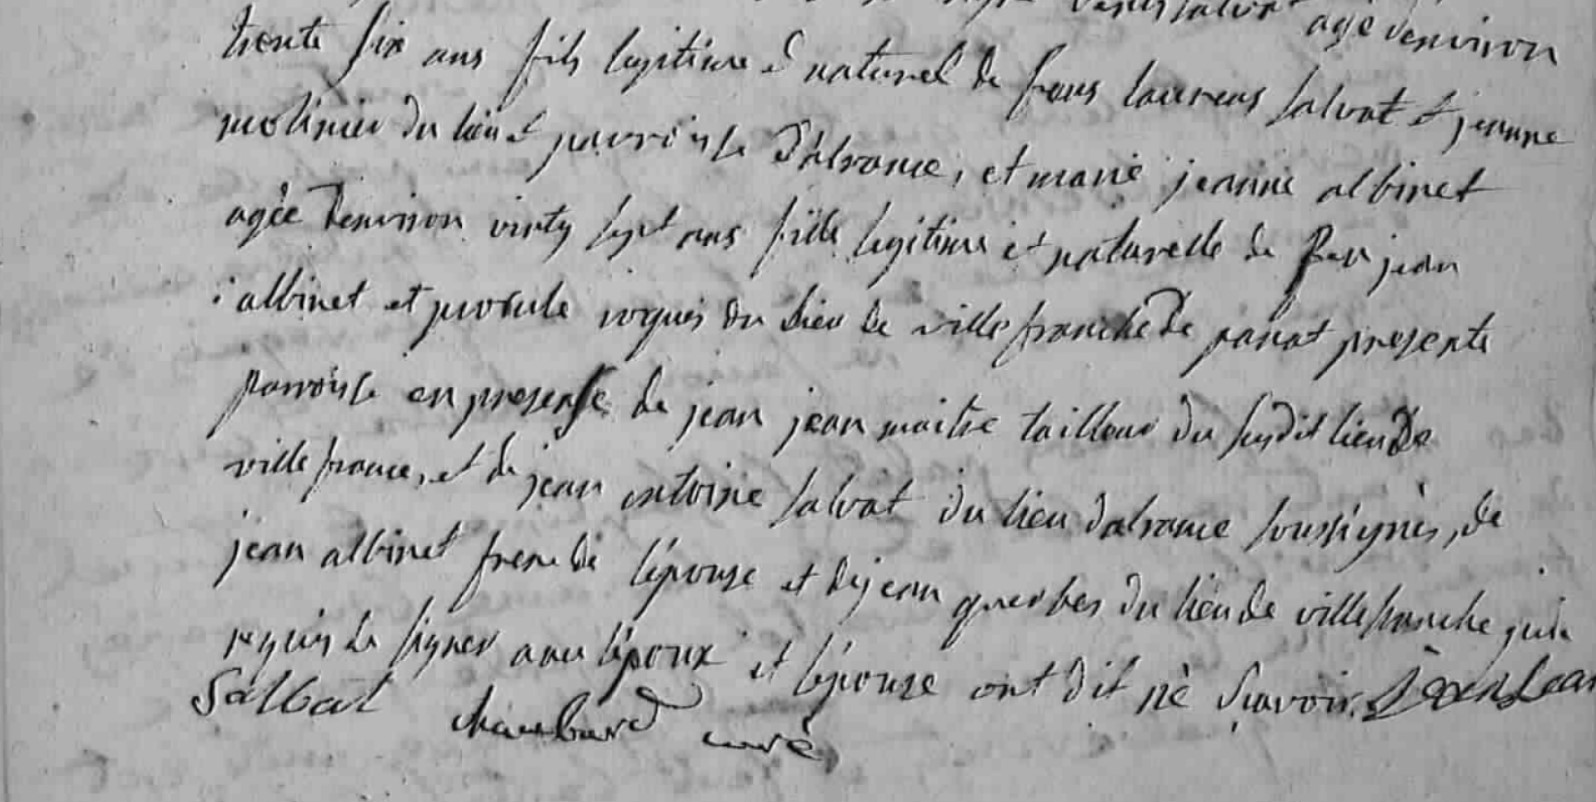 agé denviron
trente six ans fils legitime et naturel de feus laurens salvat et jeanne
molinier du lieu et parroisse d'alrance, et marie jeanne albinet
agée denviron vinty sept ans fille legitime et naturelle de feu jean
albinet et procule roquis du lieu de villefranche de panat presente
parroisse en presense de jean jean maitre tailleur du susdit lieu de
villefrance, et de jean antoine salvat du lieu dalrance soussignés, de
jean albinet frere de l'épouse et de jean querbes du lieu de villefranche qui
requis de signer avec lépoux et lépouse ont dit né sçavoir. Jean Jean
Salbat chaubard curé